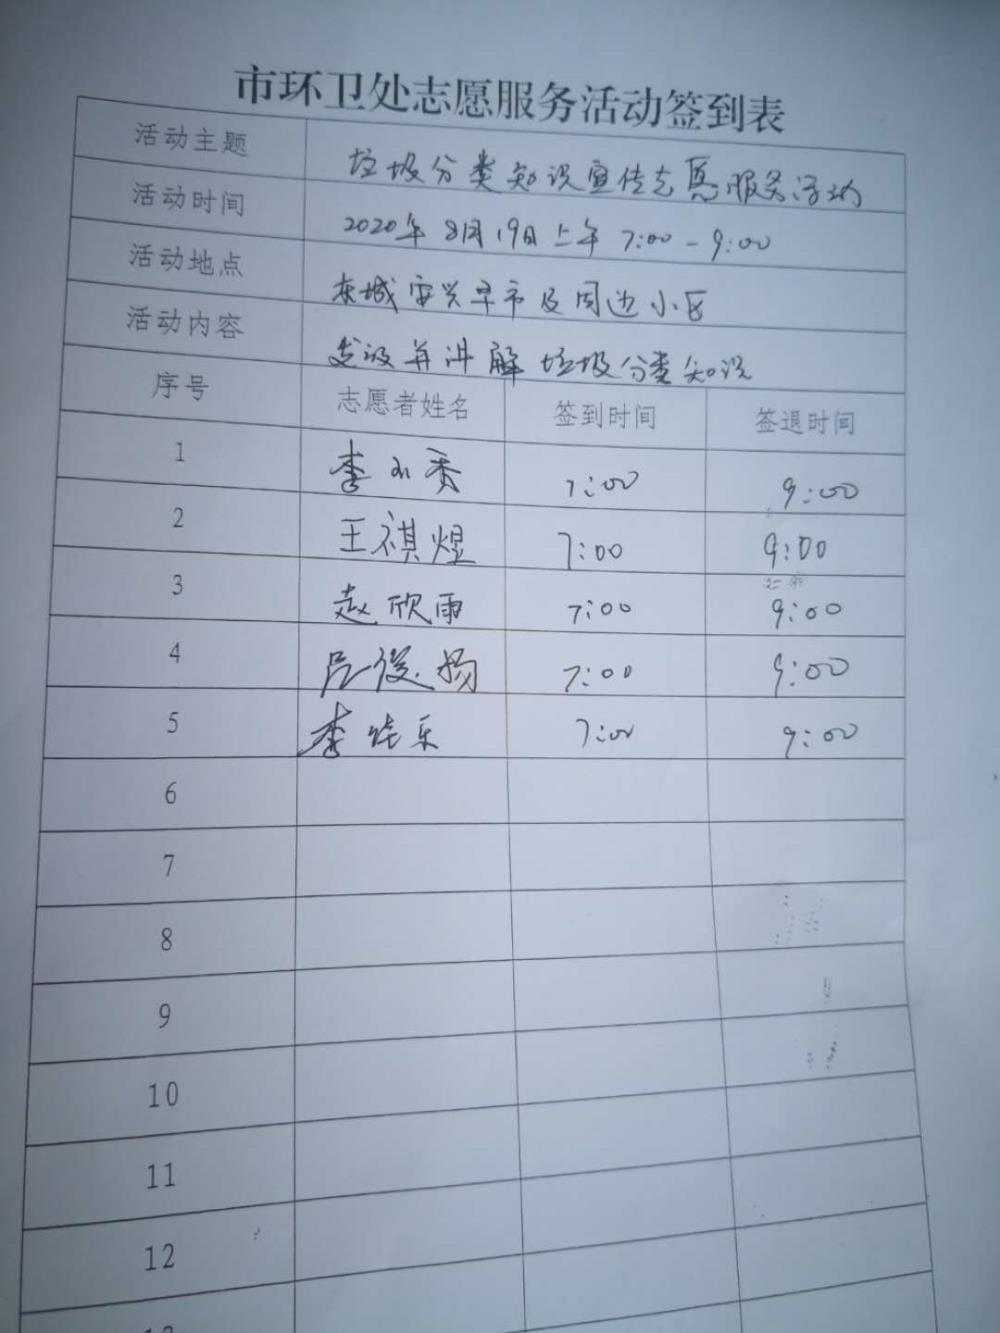 市环卫处志愿服务活动签到表
活动主题 垃圾分类知识宣传志愿服务活动
活动时间 2020年8月19日上午 7:00-9:00
活动地点 东城安兴早市及周边小区
活动内容 发放并讲解垃圾分类知识
序号 志愿者姓名 签到时间 签退时间
1 李小秀 7:00 9:00
2 王祺煜 7:00 9:00
3 赵欣雨 7:00 9:00
4 吕俊扬 7:00 9:00
5 李 乐 7:00 9:00
6
7
8
9
10
11
12